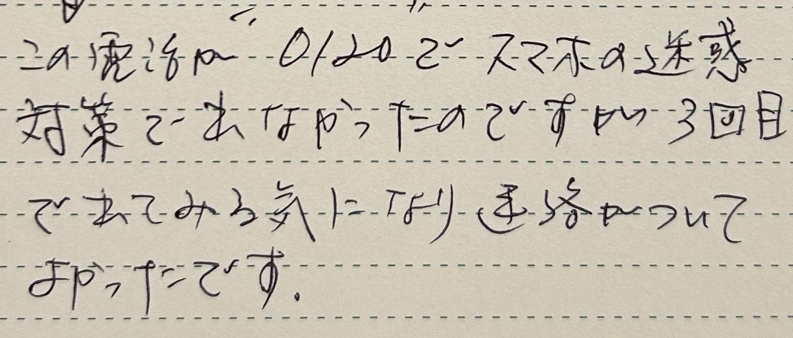 この電話が 0120で スマホの迷惑
対策で出なかったのですが 3回目
で出てみる気になり 連絡がついて
よかったです.